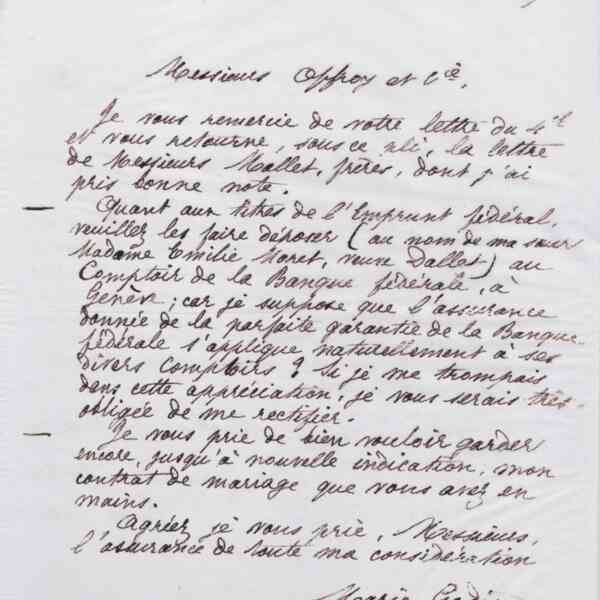 Messieurs Offroy et Cie,
Je vous remercie de votre lettre du 4ct
et vous retourne, sous ce pli, la lettre
de Messieurs Mallet, frères, dont j'ai
pris bonne note.
Quant aux titres de l'Emprunt fédéral,
veuillez les faire déposer (au nom de ma sœur
Madame Emilie Moret, veuve Dallot) au
Comptoir de la Banque fédérale, à
Genève; car je suppose que l'assurance
donnée de la parfaite garantie de la Banque
fédérale s'applique naturellement à ses
divers comptoirs? Si je me trompais
dans cette appréciation, je vous serais très-
obligée de me rectifier.
Je vous prie de bien vouloir garder
encore, jusqu'à nouvelle indication, mon
contrat de mariage que vous avez en
mains.
Agréez je vous prie, Messieurs,
l'assurance de toute ma considération
Marie